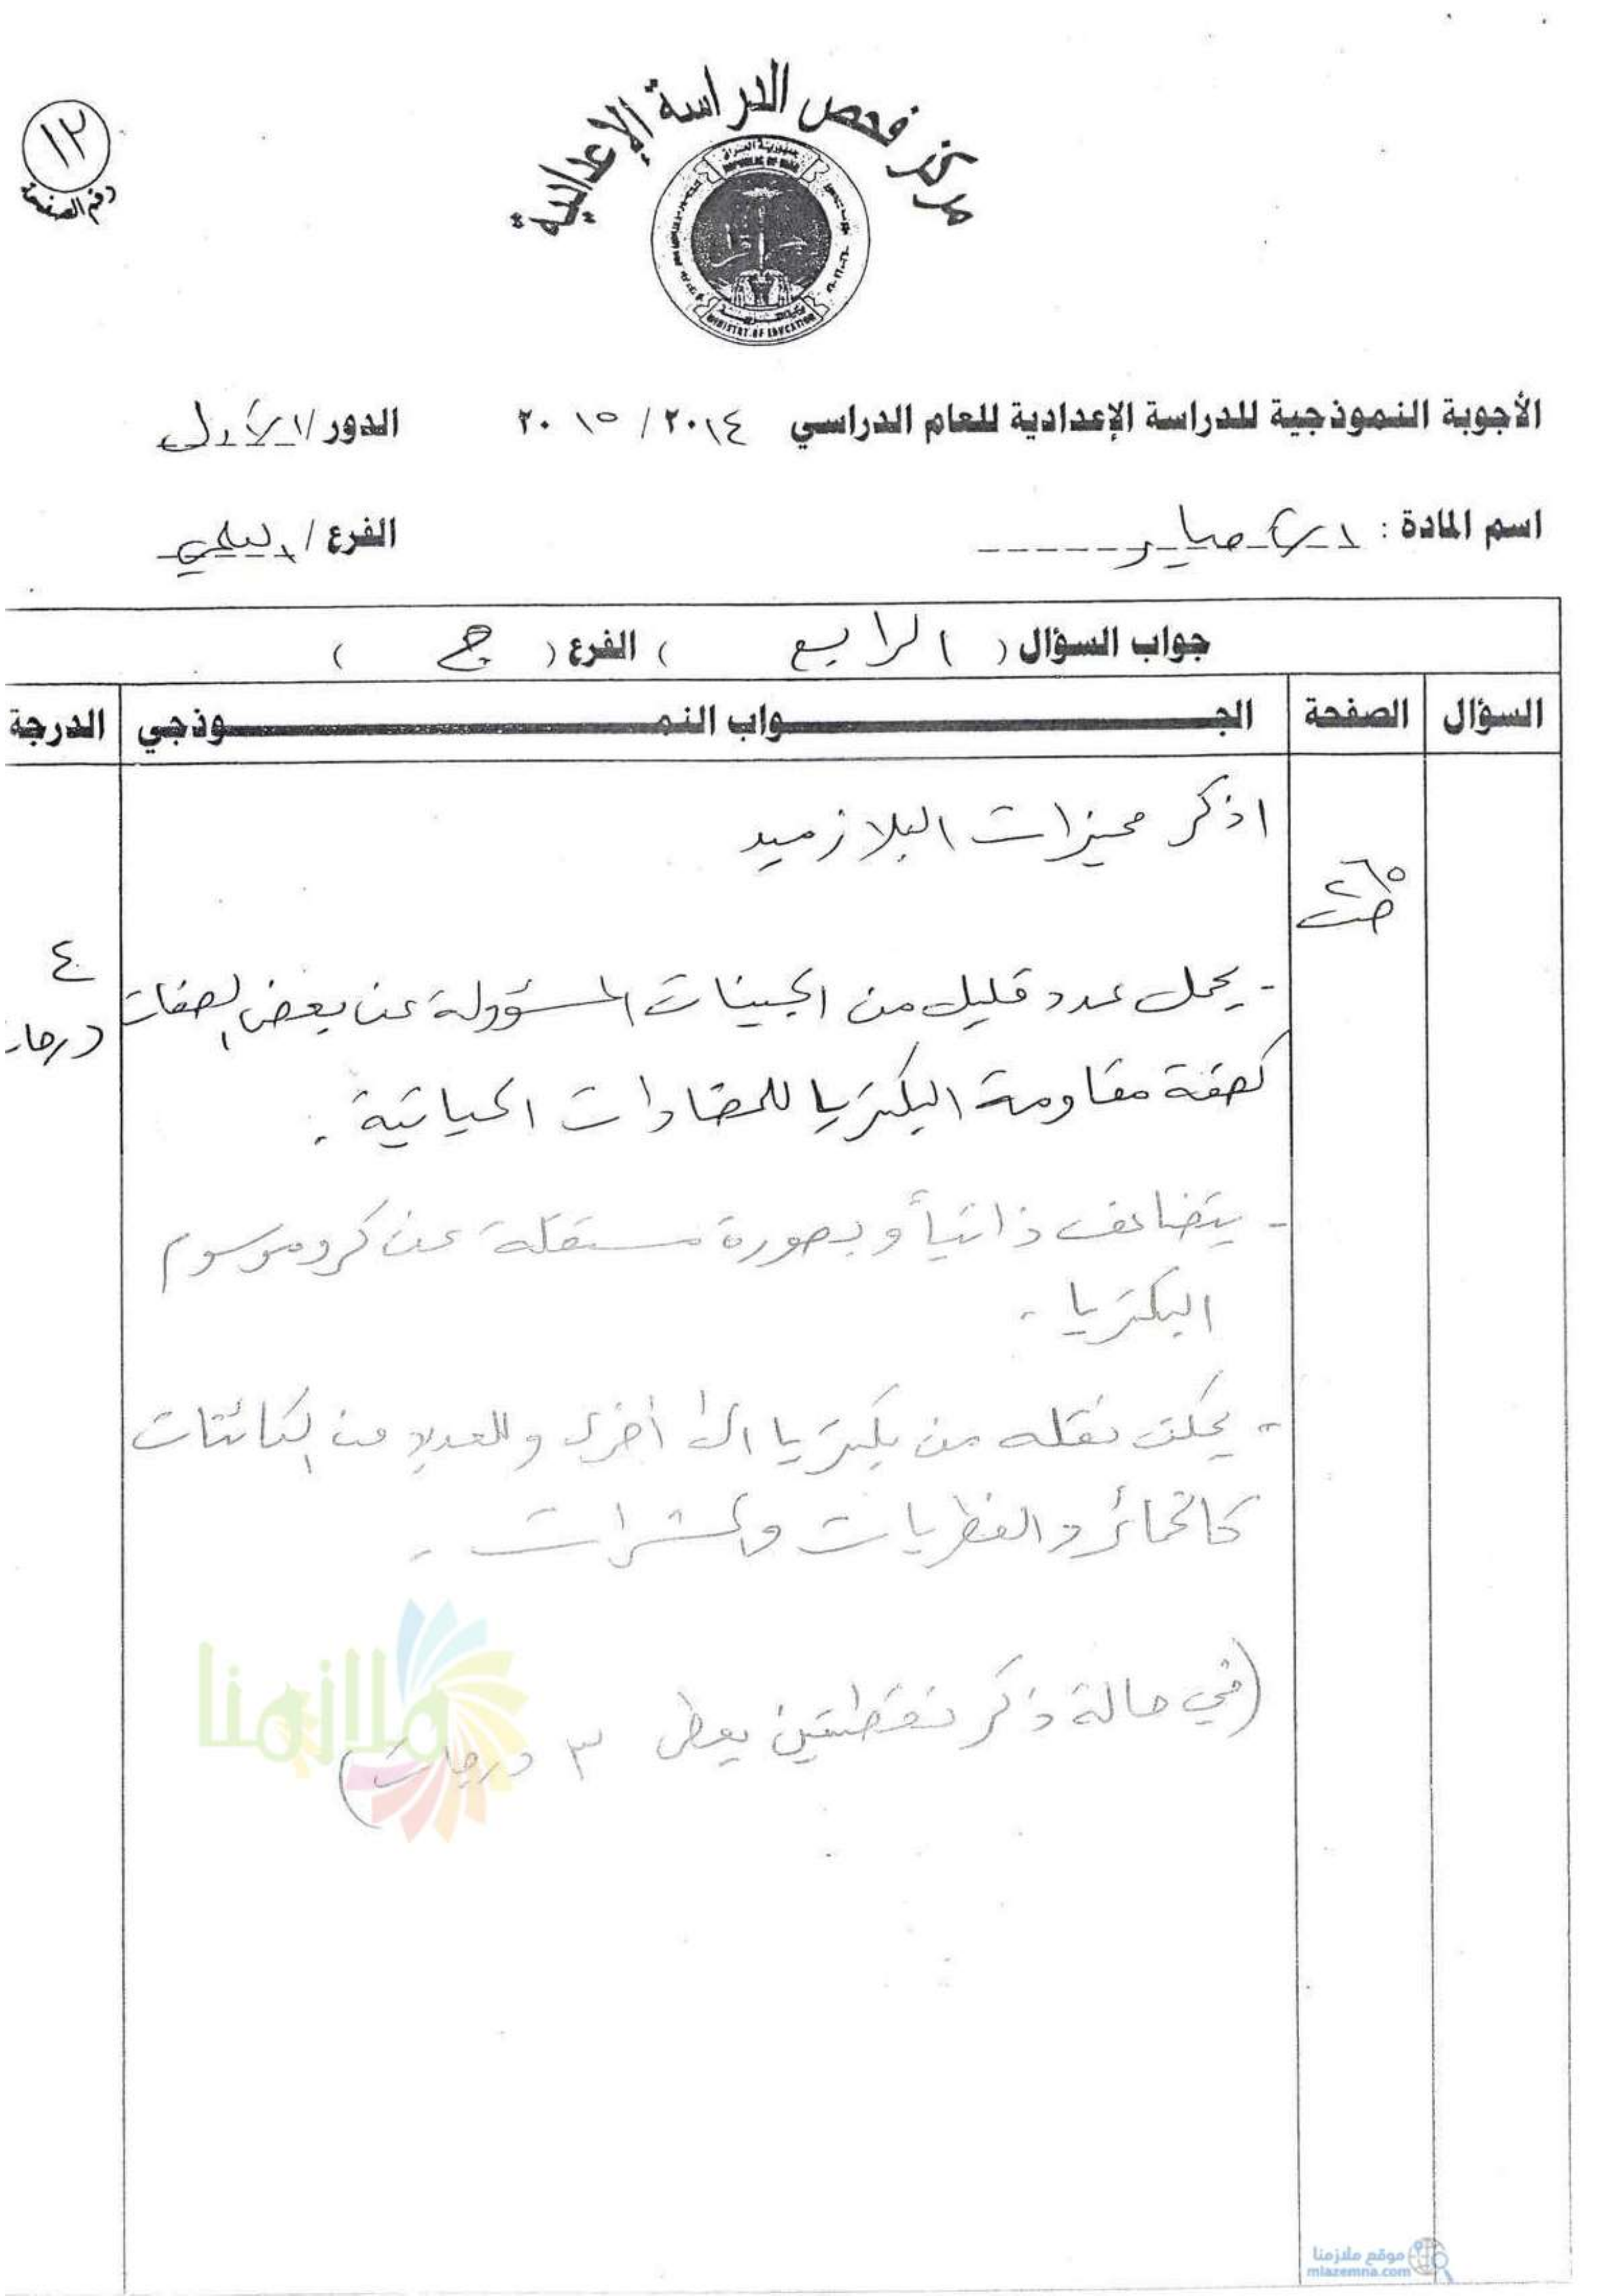 مركز فحص الدراسة الإعدادية
١٢
رقم الصفحة
جمهورية العراق
REPUBLIC OF IRAQ
MINISTRY OF EDUCATION
الأجوبة النموذجية للدراسة الإعدادية للعام الدراسي ٢٠١٤ / ٢٠١٥ الدور / الأول
اسم المادة : الأحياء الفرع / العلمي
جواب السؤال ( الرابع ) الفرع ( ج )
السؤال الصفحة الجـــواب النمـــوذجي الدرجة
اذكر مميزات البلازميد
ص٢٦٥
- يحمل عدد قليل من الجينات المسؤولة عن بعض الصفات
٤
درجات
كصفة مقاومة البكتريا للمضادات الحياتية .
- يتضاعف ذاتياً و بصورة مستقلة عن كروموسوم
البكتريا .
- يمكن نقله من بكتريا الى أخرى وللعديد من الكائنات
كالخمائر والفطريات والحشرات .
(في حالة ذكر نقطتين يعطى ٣ درجات)
ملازمنا
موقع ملازمنا
mlazemna.com